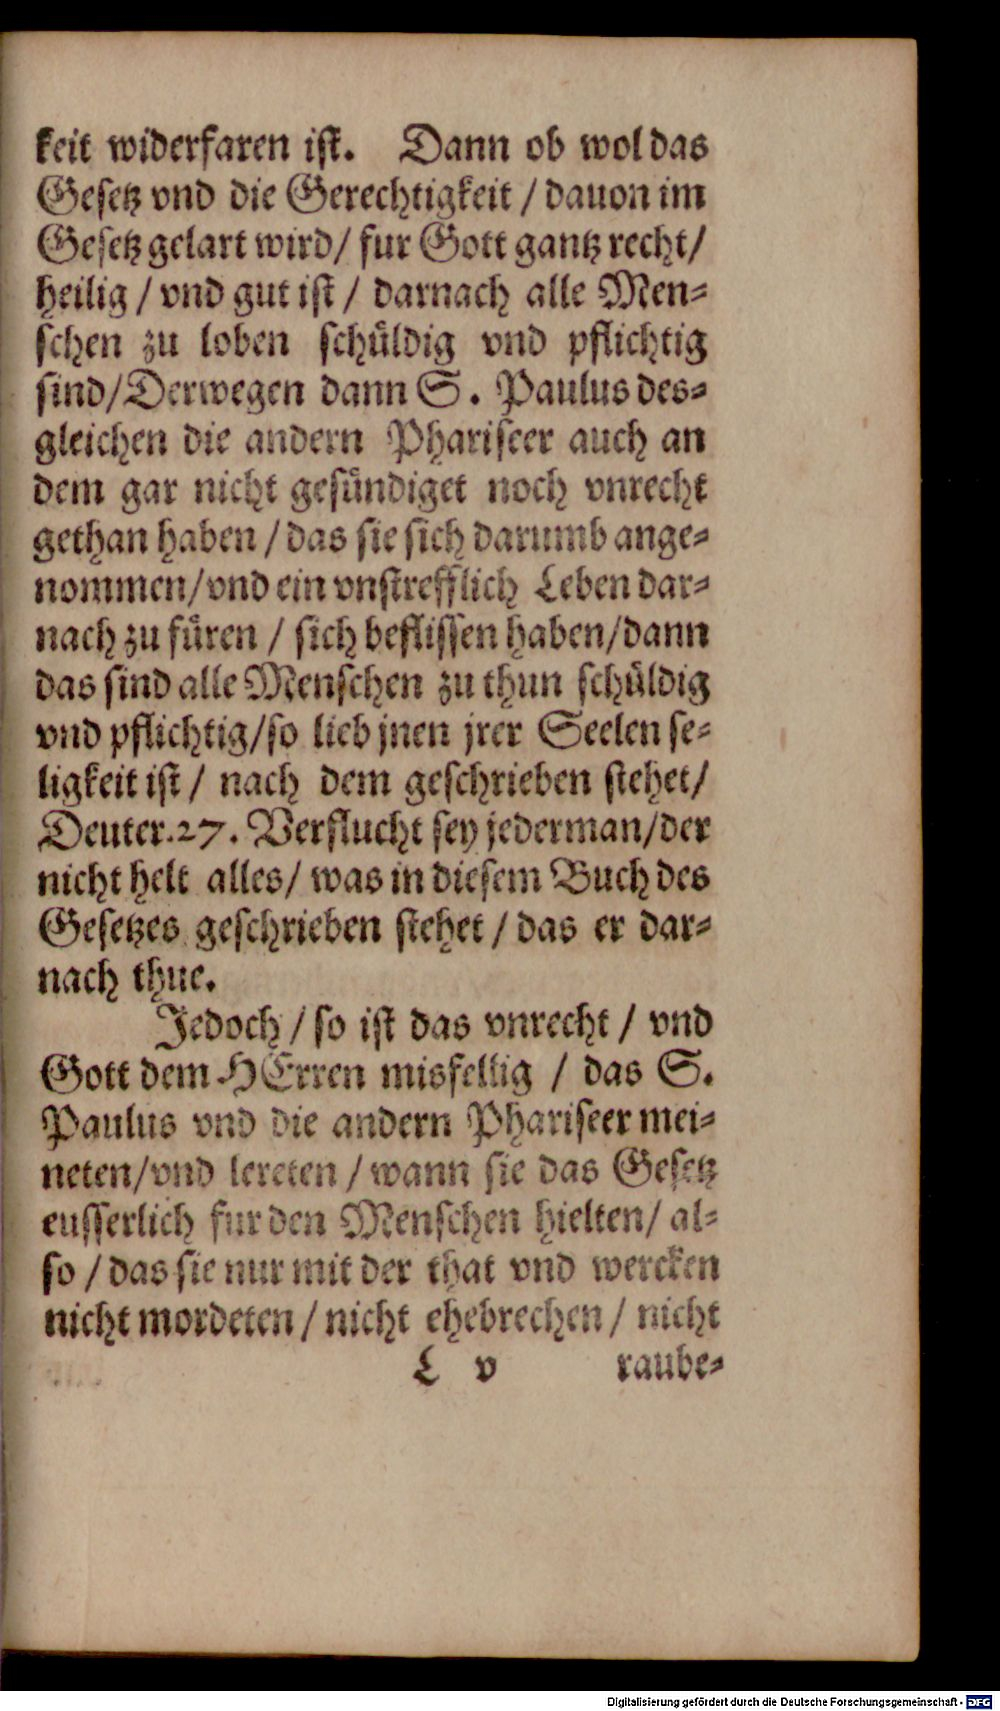 keit widerfaren ist. Dann ob wol das
Gesetz vnd die Gerechtigkeit / dauon im
Gesetz gelart wird / fur Gott gantz recht /
heilig / vnd gut ist / darnach alle Men-
schen zu loben schüldig vnd pflichtig
sind / Derwegen dann S. Paulus des-
gleichen die andern Phariseer auch an
dem gar nicht gesündiget noch vnrecht
gethan haben / das sie sich darumb ange-
nommen / vnd ein vnstrefflich Leben dar-
nach zu füren / sich beflissen haben / dann
das sind alle Menschen zu thun schüldig
vnd pflichtig / so lieb jnen jrer Seelen se-
ligkeit ist / nach dem geschrieben stehet /
Deuter. 27. Verflucht sey jederman / der
nicht helt alles / was in diesem Buch des
Gesetzes geschrieben stehet / das er dar-
nach thue.
Jedoch / so ist das vnrecht / vnd
Gott dem HErren misfellig / das S.
Paulus vnd die andern Phariseer mei-
neten / vnd lereten / wann sie das Gesetz
eusserlich fur den Menschen hielten / al-
so / das sie nur mit der that vnd wercken
nicht mordeten / nicht ehebrechen / nicht
L v raube-
Digitalisierung gefördert durch die Deutsche Forschungsgemeinschaft - DFG